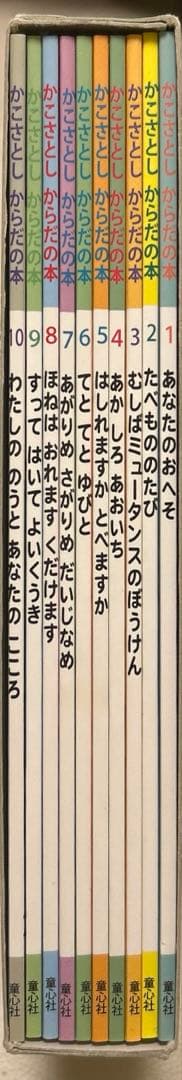 かこさとし からだの本 1 あなたのおへそ 童心社
かこさとし からだの本 2 たべもののたび 童心社
かこさとし からだの本 3 むしばミュータンスのぼうけん 童心社
かこさとし からだの本 4 あか しろ あおいち 童心社
かこさとし からだの本 5 はしれますか とべますか 童心社
かこさとし からだの本 6 てと てと ゆびと 童心社
かこさとし からだの本 7 あがりめ さがりめ だいじなめ 童心社
かこさとし からだの本 8 ほねは おれます くだけます 童心社
かこさとし からだの本 9 すって はいて よいくうき 童心社
かこさとし からだの本 10 わたしの のうと あなたの こころ 童心社